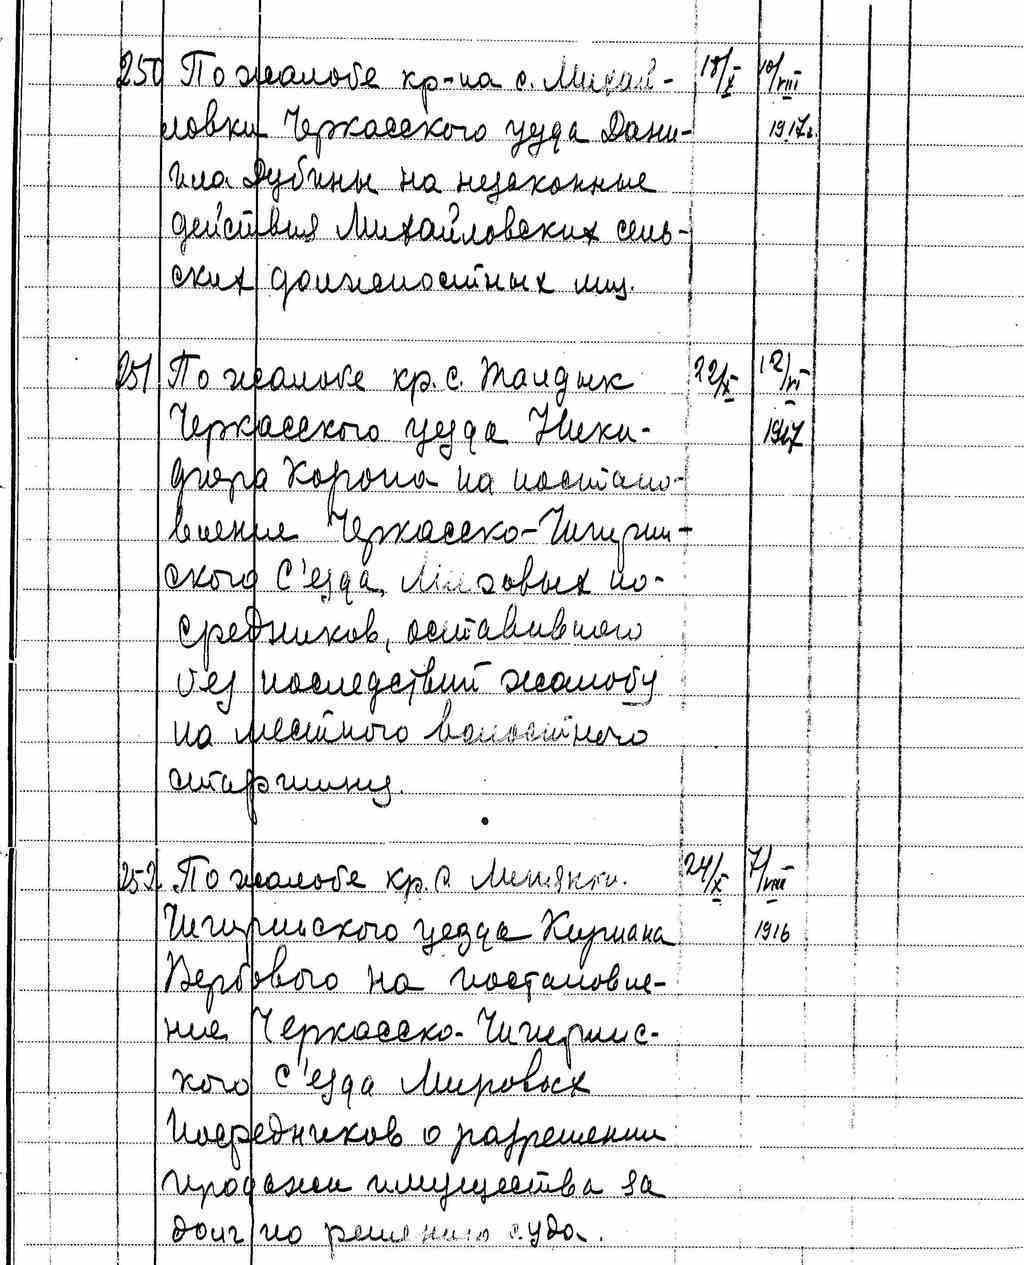 250 По жалобе кр-на с. Михай- 18/X 10/VIII
ловки Черкасского уезда Дани- 1917г.
ила Дубины на незаконные
действия Михайловских сель-
ских должностных лиц.
251 По жалобе кр. с. Талдык 22/X 12/VI
Черкасского уезда Ники- 1917
фора Короля на постано-
вление Черкасско-Чигирин-
ского С'езда Мировых по-
средников, оставившего
без последствий жалобу
на местного волостного
старшину.
252. По жалобе кр. с. 24/X 7/VIII
Чигиринского уезда Кириана 1916
Вербового на постановле-
ние Черкасско-Чигиринс-
кого С'езда Мировых
Посредников о разрешении
продажи имущества за
долг по решению суда.